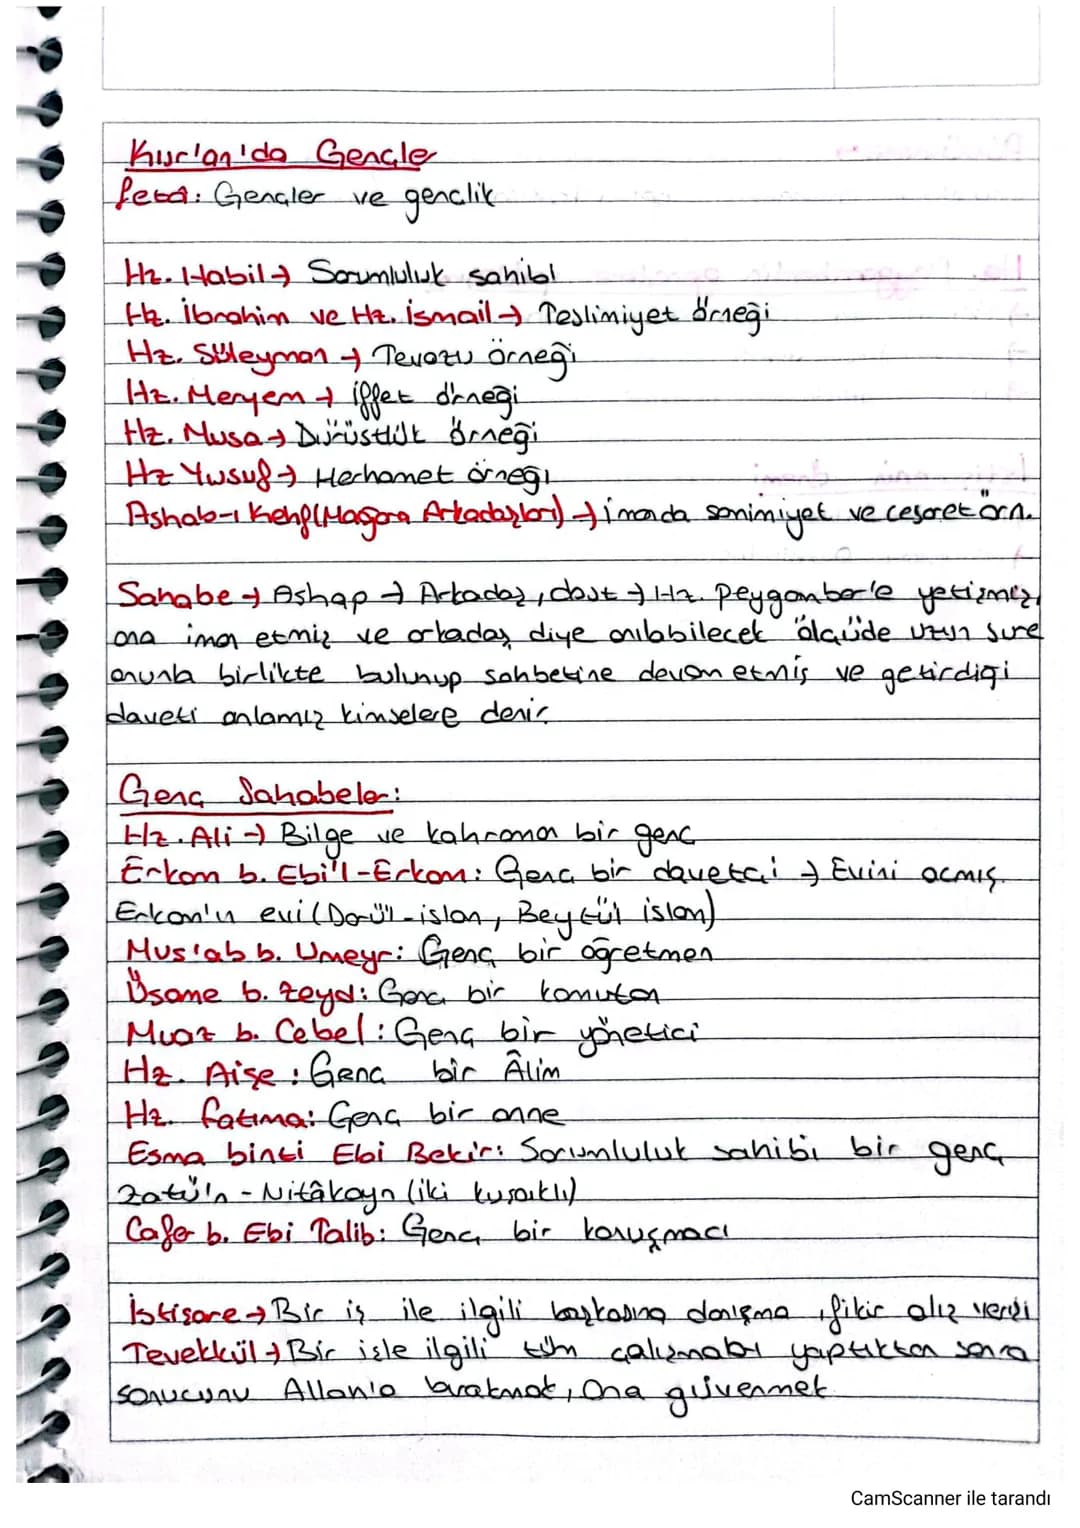 Kur'an'da Gençler
feta: Gençler ve gençlik
Hz. Habil → Sorumluluk sahibi
Hz. İbrahim ve Hz. İsmail → Teslimiyet örneği
Hz. Süleyman → Tevazu örneği
Hz. Meryem → iffet örneği
Hz. Musa → Dürüstlük örneği
Hz Yusuf → Merhamet örneği
Ashab-ı Kehf (Mağara Arkadaşları) → imanda samimiyet ve cesaret örn.
Sahabe → Ashap → Arkadaş, dost → Hz. Peygamber'le yetişmiş,
ona iman etmiş ve arkadaş diye anılabilecek ölçüde uzun süre
onunla birlikte bulunup sohbetine devam etmiş ve getirdiği
daveti anlamış kimselere denir.
Genç Sahabeler:
Hz. Ali → Bilge ve kahraman bir genç
Erkam b. Ebi'l-Erkam: Genç bir davetçi → Evini açmış.
Erkam'ın evi (Darü'l-islam, Beytül islam)
Mus'ab b. Umeyr: Genç bir öğretmen
Üsame b. Zeyd: Genç bir komutan
Muaz b. Cebel: Genç bir yönetici
Hz. Aişe: Genç bir Âlim
Hz. fatıma: Genç bir anne
Esma binti Ebi Bekir: Sorumluluk sahibi bir genç
Zatü'n-Nitâkayn (iki kuşaklı)
Cafer b. Ebi Talib: Genç bir konuşmacı
İstişare → Bir iş ile ilgili başkasına danışma, fikir alış verişi
Tevekkül → Bir işle ilgili tüm çalışmaları yaptıktan sonra
sonucunu Allah'a bırakmak, Ona güvenmek
CamScanner ile tarandı